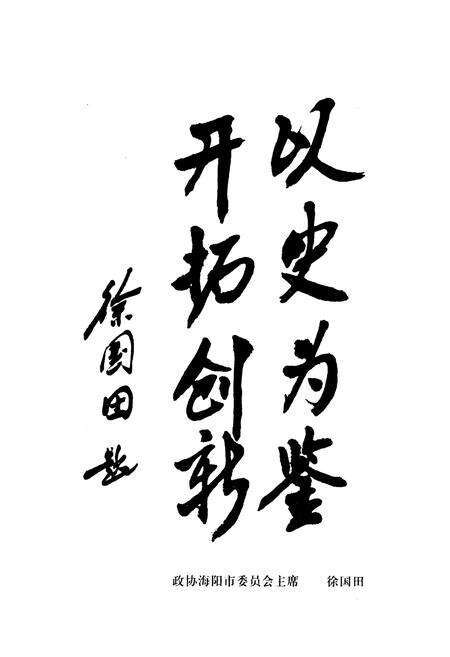 以史为鉴
开拓创新
徐国田题
政协海阳市委员会主席 徐国田